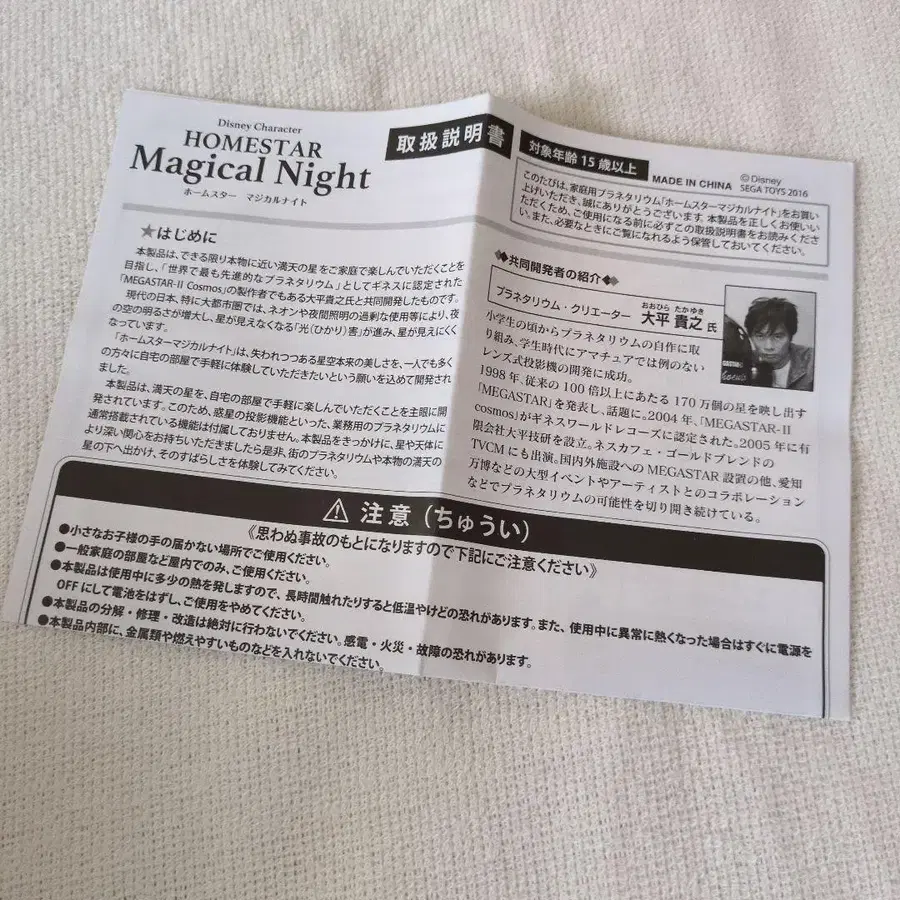 Disney Character
HOMESTAR
Magical Night
ホームスター マジカルナイト
取扱説明書
対象年齢 15 歳以上
MADE IN CHINA
©Disney
SEGA TOYS 2016
このたびは、家庭用プラネタリウム「ホームスターマジカルナイト」をお買い
上げいただき、誠にありがとうございます。本製品を正しくお使いい
ただくため、ご使用になる前に必ずこの取扱説明書をお読みくださ
い。また、必要なときにご覧になれるよう保管しておいてください。
★はじめに
本製品は、できる限り本物に近い満天の星をご家庭で楽しんでいただくことを
目指し、「世界で最も先進的なプラネタリウム」としてギネスに認定された
「MEGASTAR-II Cosmos」の製作者でもある大平貴之氏と共同開発したものです。
現代の日本、特に大都市圏では、ネオンや夜間照明の過剰な使用等により、夜
の空の明るさが増大し、星が見えなくなる「光（ひかり）害」が進み、星が見えにくく
なっています。
「ホームスターマジカルナイト」は、失われつつある星空本来の美しさを、一人でも多く
の方々に自宅の部屋で手軽に体験していただきたいという願いを込めて開発され
ました。
本製品は、満天の星を、自宅の部屋で手軽に楽しんでいただくことを主眼に開
発されています。このため、惑星の投影機能といった、業務用のプラネタリウムに
通常搭載されている機能は付属しておりません。本製品をきっかけに、星や天体に
より深い関心をお持ちいただきましたら是非、街のプラネタリウムや本物の満天の
星の下へ出かけ、そのすばらしさを体験してみてください。
◆共同開発者の紹介◆
プラネタリウム・クリエーター
おおひら たかゆき
大平 貴之 氏
小学生の頃からプラネタリウムの自作に取
り組み、学生時代にアマチュアでは例のない
レンズ式投影機の開発に成功。
1998 年、従来の 100 倍以上にあたる 170 万個の星を映し出す
「MEGASTAR」を発表し、話題に。2004 年、「MEGASTAR-II
cosmos」がギネスワールドレコーズに認定された。2005 年に有
限会社大平技研を設立。ネスカフェ・ゴールドブレンドの
TVCM にも出演。国内外施設への MEGASTAR 設置の他、愛知
万博などの大型イベントやアーティストとのコラボレーション
などでプラネタリウムの可能性を切り開き続けている。
⚠ 注意（ちゅうい）
《思わぬ事故のもとになりますので下記にご注意ください》
●小さなお子様の手の届かない場所でご使用ください。
●一般家庭の部屋など屋内でのみ、ご使用ください。
●本製品は使用中に多少の熱を発しますので、長時間触れたりすると低温やけどの恐れがあります。また、使用中に異常に熱くなった場合はすぐに電源を
OFF にして電池をはずし、ご使用をやめてください。
●本製品の分解・修理・改造は絶対に行わないでください。感電・火災・故障の恐れがあります。
●本製品内部に、金属類や燃えやすいものなどを入れないでください。